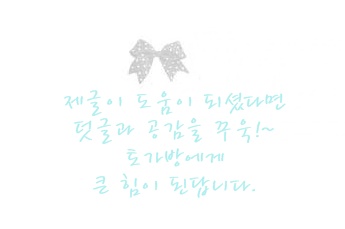 제글이 도움이 되셨다면
덧글과 공감을 꾸욱!~
토가방에게
큰 힘이 된답니다.